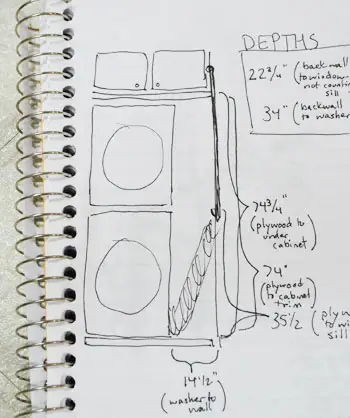 DEPTHS
22 3/4" (back wall
to window
sill)
34" (backwall
to washer
74 3/4"
(plywood to
under
cabinet)
74"
(plywood
to cabinet
trim)
35 1/2
sill
14 1/2"
(washer to
wall)